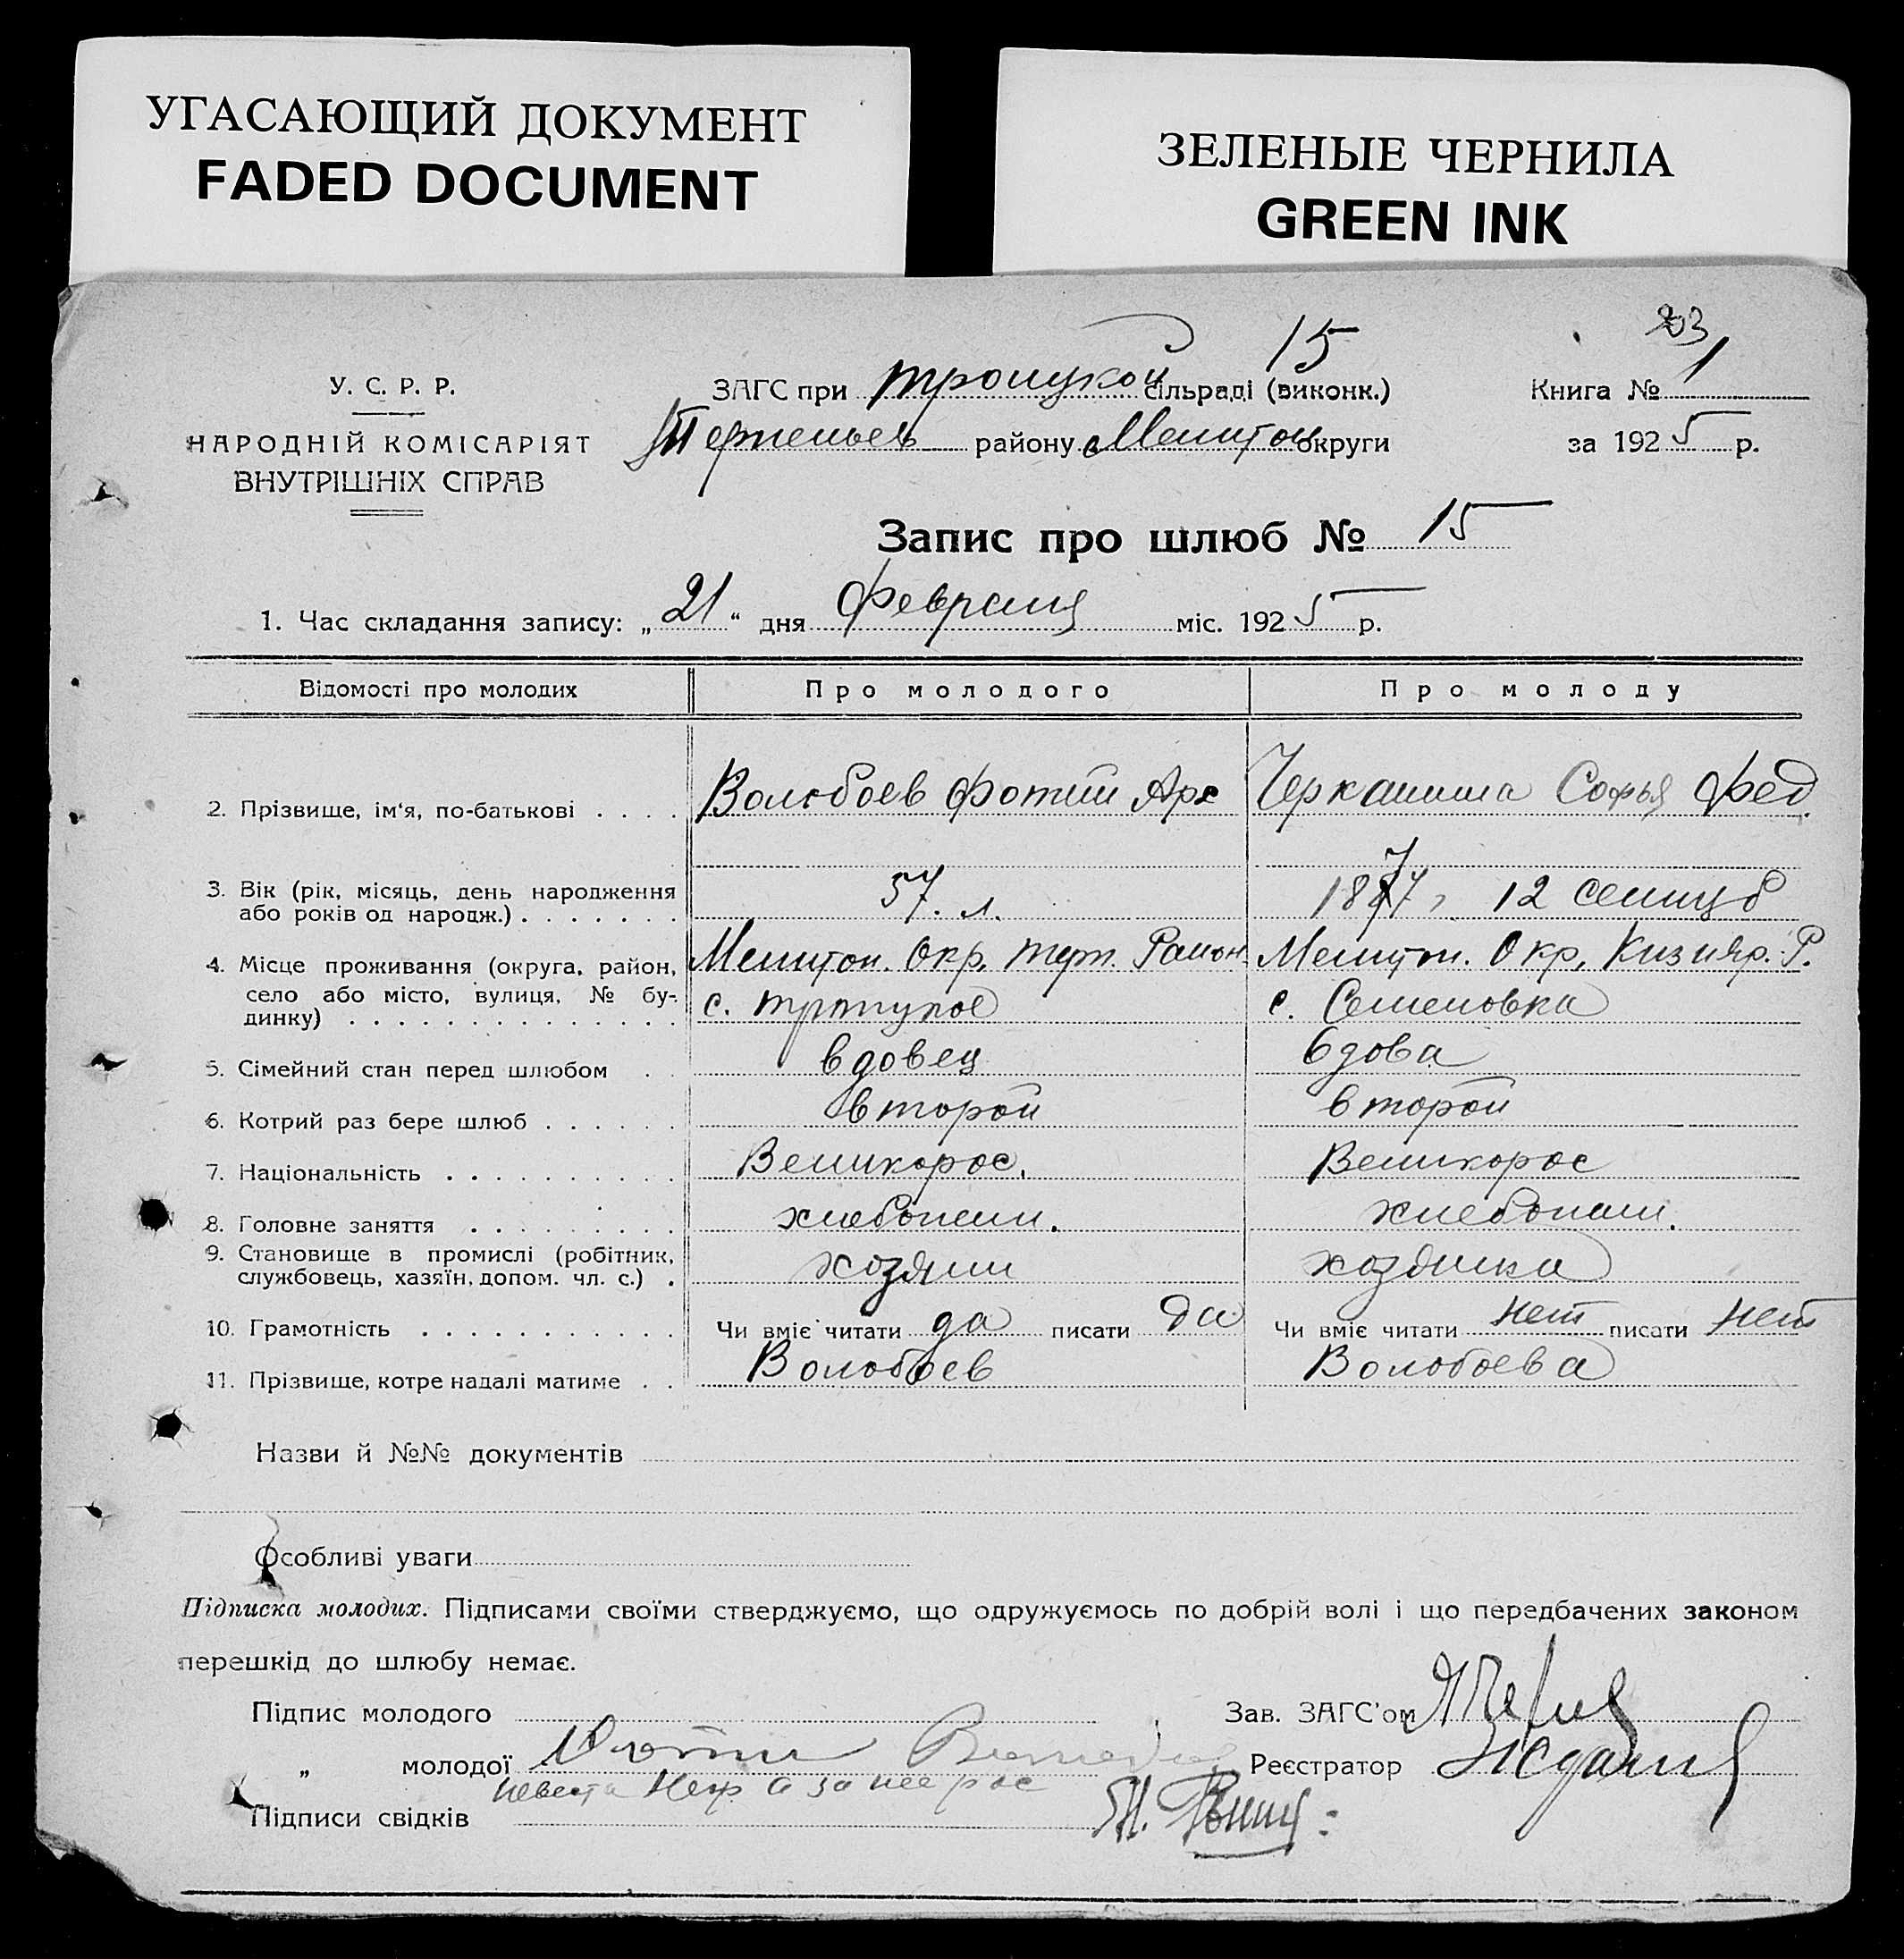 УГАСАЮЩИЙ ДОКУМЕНТ
FADED DOCUMENT
ЗЕЛЕНЫЕ ЧЕРНИЛА
GREEN INK
23
У. С. Р. Р.
НАРОДНІЙ КОМІСАРІЯТ
ВНУТРІШНІХ СПРАВ
15
ЗАГС при Троицкой сільраді (виконк.)
Терпеньев району Мелитоп округи
Книга № 1
за 1925 р.
Запис про шлюб № 15
1. Час складання запису: „21“ дня Февраля міс. 1925 р.
Відомості про молодих Про молодого Про молоду
2. Прізвище, ім‘я, по-батькові . . . . Волобоев Фотий Арх Софья Фед.
3. Вік (рік, місяць, день народження
або років од народж.) . . . . . . . 57. л. 1877 12
4. Місце проживання (округа, район,
село або місто, вулиця, № бу-
динку) . . . . . . . . . . . . . .
Мелитоп. Окр. Терп. Район. Мелит. Окр. Кизияр. Р.
с. Троицкое с. Семеновка
5. Сімейний стан перед шлюбом . . вдовец вдова
6. Котрий раз бере шлюб . . . . . . второй второй
7. Національність . . . . . . . . . . Великорос. Великорос
8. Головне заняття . . . . . . . . . хлебопаш. хлебопаш.
9. Становище в промислі (робітник,
службовець, хазяїн, допом. чл. с.) . хозяин хозяйка
10. Грамотність . . . . . . . . . . . Чи вміє читати да писати да Чи вміє читати нет писати нет
11. Прізвище, котре надалі матиме . . Волобоев Волобоева
Назви й №№ документів
Особливі уваги
Підписка молодих. Підписами своїми стверджуємо, що одружуємось по добрій волі і що передбачених законом
перешкід до шлюбу немає.
Підпис молодого
Зав. ЗАГС’ом
„ молодої Фотий
Реєстратор
невеста Негр. а за нее рос
Підписи свідків